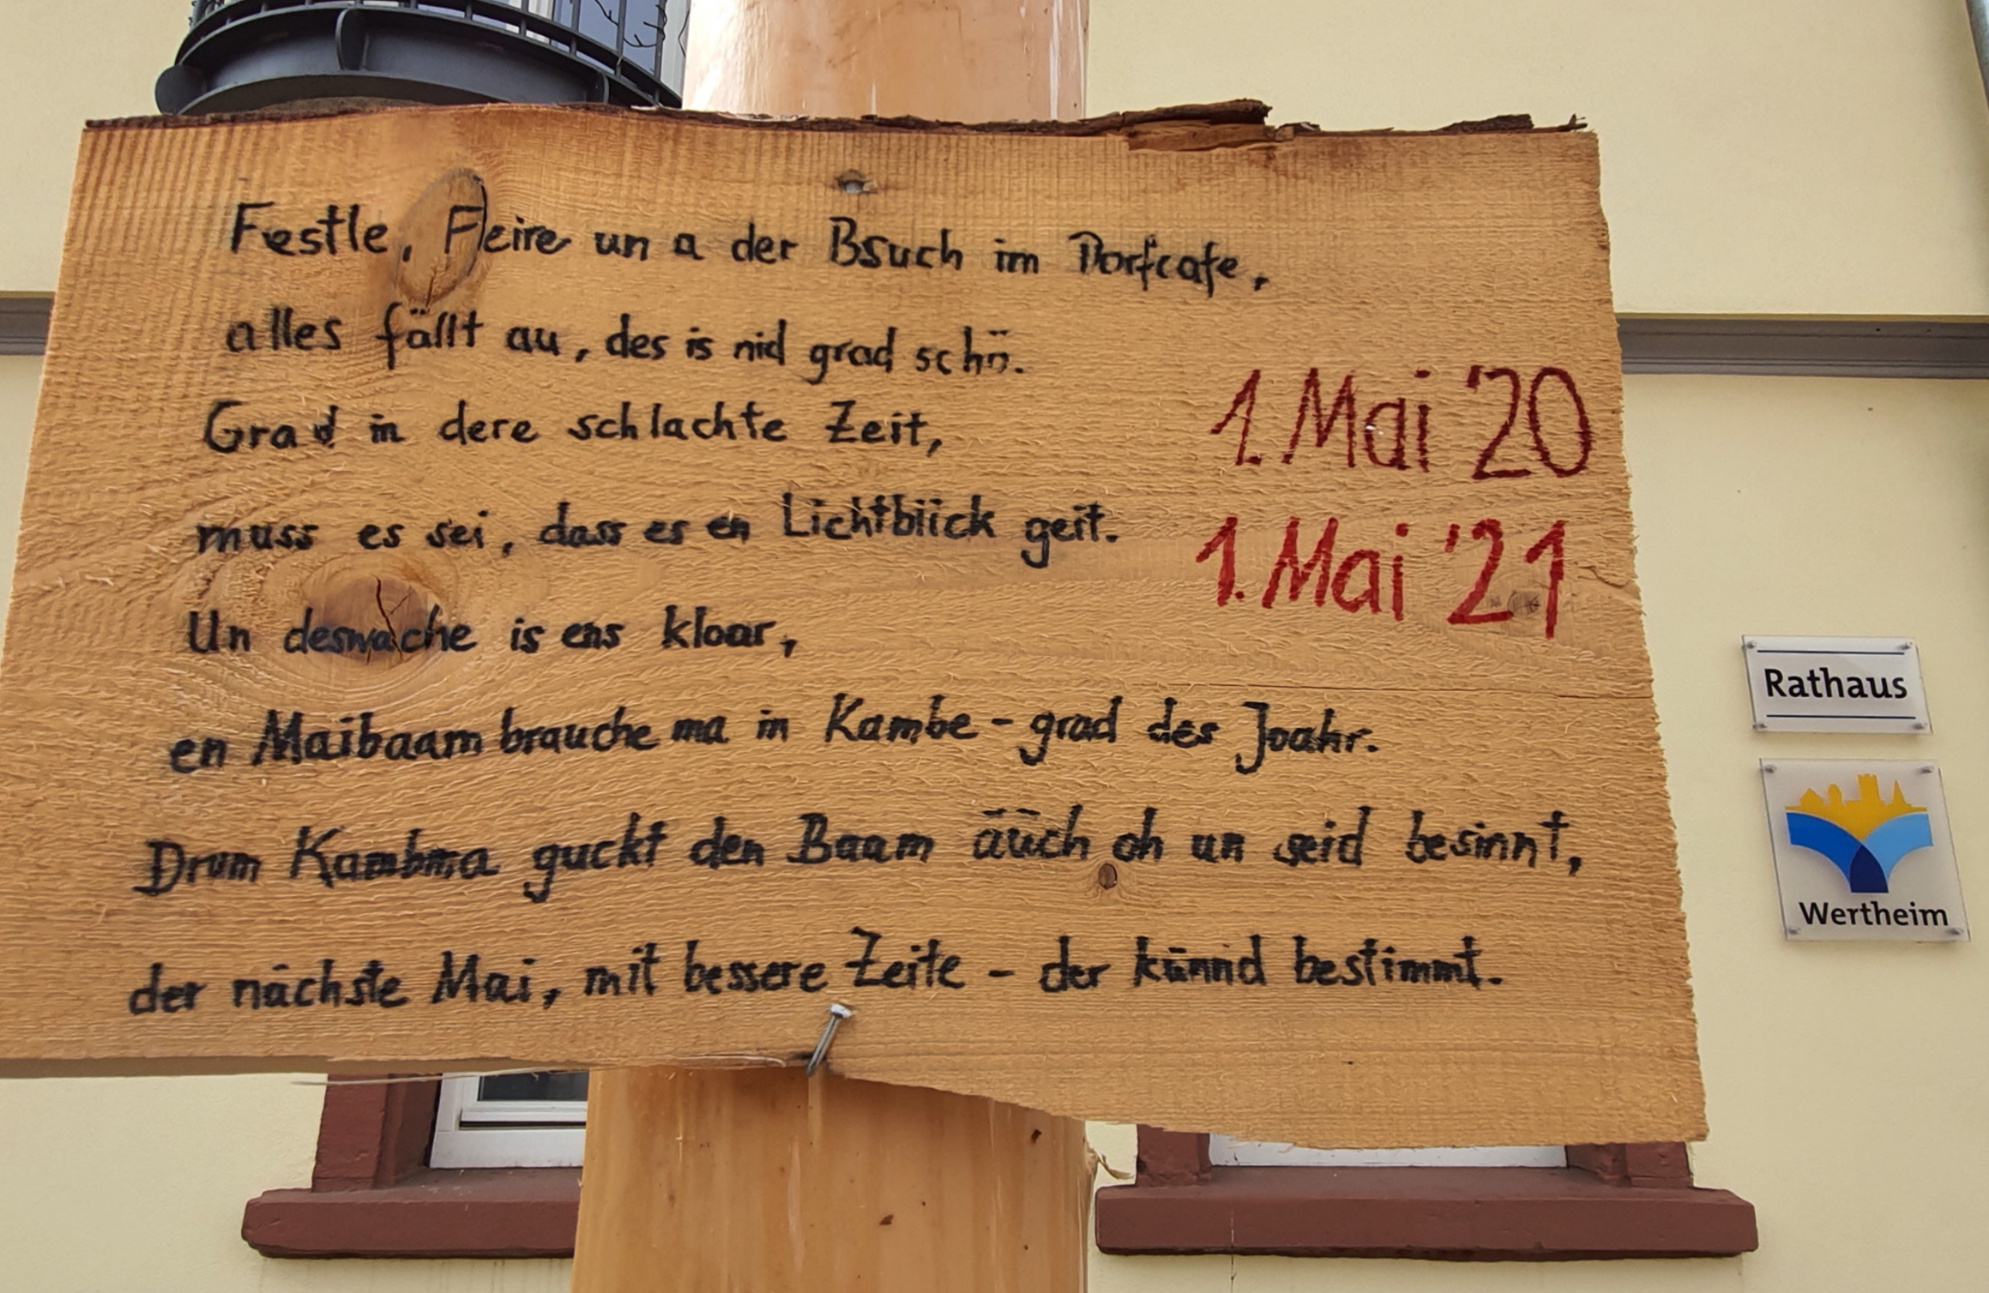 Festle, Feire un a der Bsuch im Dorfcafe,
alles fällt au, des is nid grad schö.
Grad in dere schlachte Zeit,
muss es sei, dass es en Lichtblick geit.
Un deswache is ens kloar,
en Maibaam brauche ma in Kambe - grad des Joahr.
Drum Kambma guckt den Baam äüch oh un seid besinnt,
der nächste Mai, mit bessere Zeite - der künnd bestimmt.
1. Mai '20
1. Mai '21
Rathaus
Wertheim